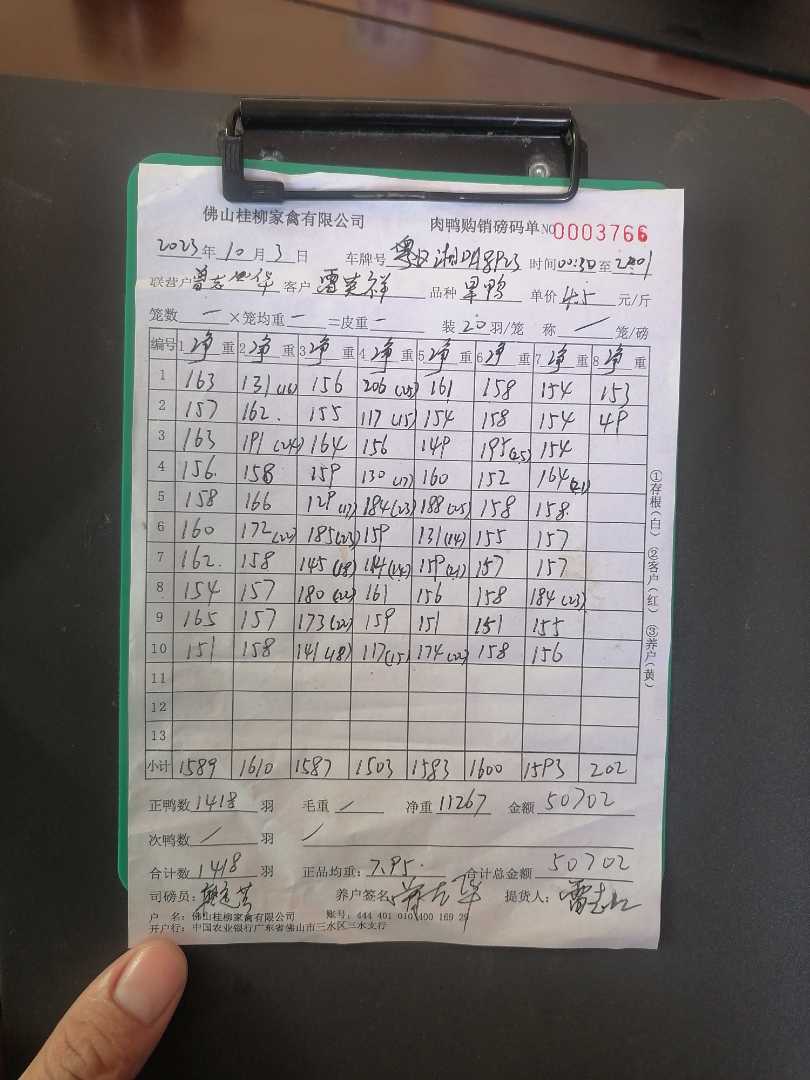 佛山桂柳家禽有限公司 肉鸭购销磅码单 NO 0003766
2023年10月3日 车牌号 时间00:30至2:01
联营户 客户 雷美祥 品种 单价 4.5 元/斤
笼数 一 ×笼均重 一 =皮重 一 装20羽/笼 称 / 笼/磅
编号 1 净重 2 净重 3 净重 4 净重 5 净重 6 净重 7 净重 8 净重
1 163 131(16) 156 206(25) 161 158 154 153
2 157 162. 155 117(15) 154 158 154 49
3 163 191(24) 164 156 149 195(25) 154
4 156. 158 159 130(17) 160 152 164(21)
5 158 166 129(17) 184(23) 188(25) 158 158.
6 160 172(22) 185(23) 159 131(14) 155 157
7 162. 158 145(18) 114(14) 159(21) 157 157
8 154 157 180(22) 161 156 158 184(23)
9 165 157 173(22) 159 151 151 155
10 151 158 141(18) 117(15) 174(22) 158 156
11
12
13
小计 1589 1610 1587 1503 1583 1600 1593 202
正鸭数 1418 羽 毛重 / 净重 11267 金额 50702
次鸭数 / 羽 /
合计数 1418 羽 正品均重: 7.95. 合计总金额 50702
司磅员: 养户签名 提货人: 雷志
户 名: 佛山桂柳家禽有限公司 账号: 444 401 010 400 169 29
开户行: 中国农业银行广东省佛山市三水区三水支行
①存根(白) ②客户(红) ③养户(黄)